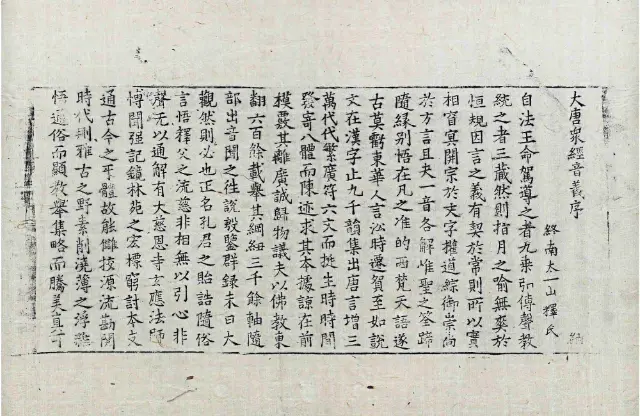 大唐衆經音義序
終南太一山釋氏
自法王命駕導之者九乗引傳聲教
統之者三藏然則指月之喻無爽於
恒規因言之義有契於常則所以實
相窅冥開宗於文字權道綜御崇尚
於方言且夫一音各解惟聖之筌蹄
隨緣别悟在凡之准的西梵天語遂
古莫虧東華人言訟時遷貿至如說
文在漢字止九千韻集出唐言増三
萬代代繁廣符六文而挺生時時間
發寄八體而陳迹求其本據諒在前
模覈其離廣誠歸物議夫以佛教東
翻六百餘載舉其綱紐三千餘軸隨
部出音聞之往說敡鑒群録未曰大
觀然則必也正名孔君之貽誥隨俗
言悟釋父之流慈非相無以引心非
聲無以通解有大慈恩寺玄應法師
愽聞强記鏡林苑之宏標窮討本文
通古今之乎體故能讎挍源流勘閱
時代刪雅古之野素削澆薄之浮雜
悟通俗而顯教舉集略而騰美真可